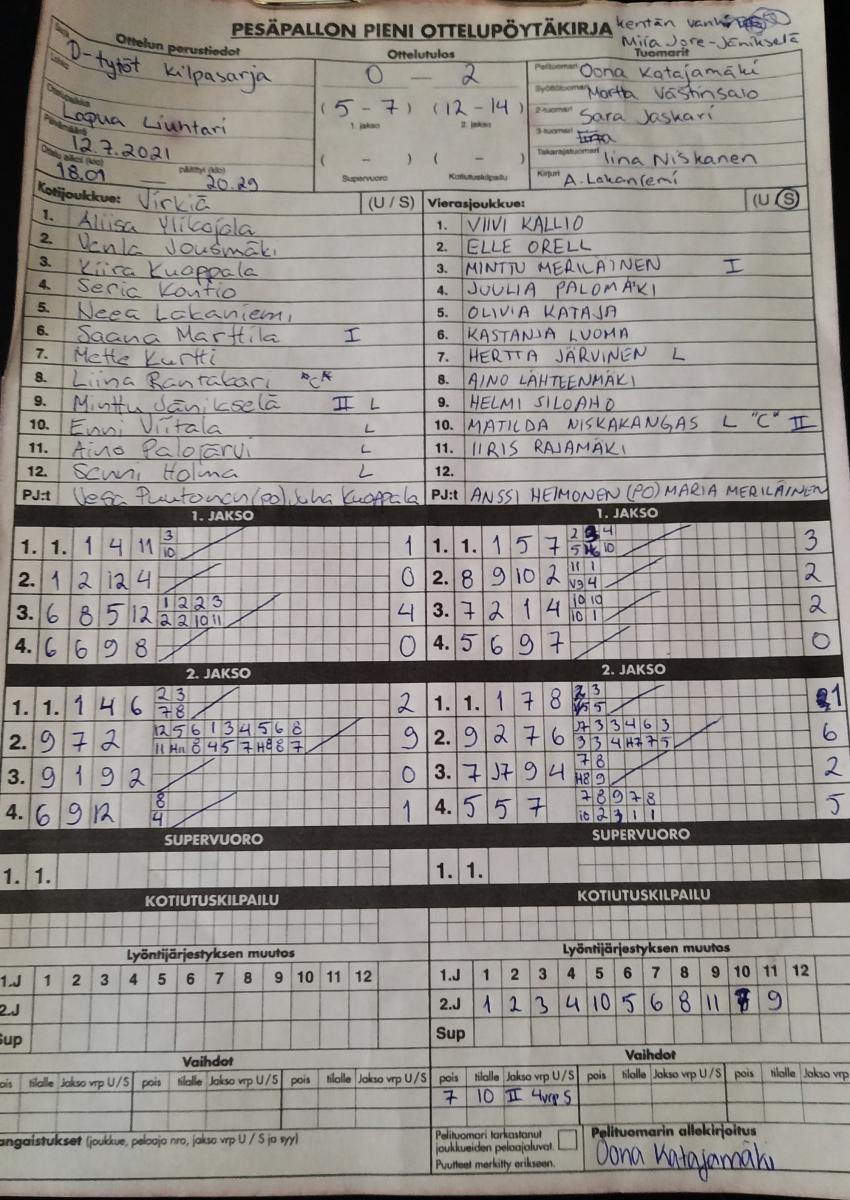 PESÄPALLON PIENI OTTELUPÖYTÄKIRJA
kentän
Miia Jore-Jänikselä
Ottelun perustiedot
Ottelutulos
Tuomarit
D-tytöt kilpasarja
0 — 2
Pelituomari Oona Katajamäki
(5-7) (12-14)
Martta Västinsalo
1. jakso 2. jakso
2-tuomari Sara Jaskari
Lapua Liuhtari
3-tuomari
12.7.2021
( - ) ( - )
Takarajatuomari Iina Niskanen
18.01 — päättyi (klo) 20.29
Supervuoro Kotiutuskilpailu
Kirjuri A. Lakaniemi
Kotijoukkue: Virkiä (U / S)
Vierasjoukkue: (U / S)
1. Aliisa Ylikojola
1. VIIVI KALLIO
2. Venla Jousmäki
2. ELLE ORELL
3. Kiira Kuoppala
3. MINTTU MERILÄINEN I
4. Seria Kontio
4. JUULIA PALOMÄKI
5. Neea Lakaniemi
5. OLIVIA KATAJA
6. Saana Marttila I
6. KASTANJA LUOMA
7. Mette Kurtti
7. HERTTA JÄRVINEN L
8. Liina Rantakari "C"
8. AINO LÄHTEENMÄKI
9. Minttu Jänikselä II L
9. HELMI SILOAHO
10. Enni Viitala L
10. MATILDA NISKAKANGAS L "C" II
11. Aino Palojärvi L
11. IIRIS RAJAMÄKI
12. Senni Holma L
12.
PJ:t Vesa Puutonen (po), Juha Kuoppala
PJ:t ANSSI HEIMONEN (PO) MARIA MERILÄINEN
1. JAKSO
1. JAKSO
1. 1. 1 4 11 3 10 1
1. 1. 1 5 7 3
2. 1 2 12 4 0
2. 8 9 10 2 2
3. 6 8 5 12 1 2 2 3 2 2 10 11 4
3. 7 2 1 4 10 10 10 1 2
4. 6 6 9 8 0
4. 5 6 9 7 0
2. JAKSO
2. JAKSO
1. 1. 1 4 6 2 3 7 8 2
1. 1. 1 7 8 1
2. 9 7 2 12 5 6 1 3 4 5 6 8 9
2. 9 2 7 6 6
3. 9 1 9 2 0
3. 7 J7 9 4 7 8 H8 9 2
4. 6 9 12 8 4 1
4. 5 5 7 7 8 9 7 8 10 2 3 1 1 5
SUPERVUORO
SUPERVUORO
1. 1.
1. 1.
KOTIUTUSKILPAILU
KOTIUTUSKILPAILU
Lyöntijärjestyksen muutos
Lyöntijärjestyksen muutos
1.J 1 2 3 4 5 6 7 8 9 10 11 12
1.J 1 2 3 4 5 6 7 8 9 10 11 12
2.J
2.J 1 2 3 4 10 5 6 8 11 9
Sup
Sup
Vaihdot
Vaihdot
pois tilalle Jakso vrp U/S pois tilalle Jakso vrp U/S pois tilalle Jakso vrp U/S
pois tilalle Jakso vrp U/S pois tilalle Jakso vrp U/S pois tilalle Jakso vrp
7 10 II 4vrp S
angaistukset (joukkue, pelaaja nro, jakso vrp U / S ja syy)
Pelituomari tarkastanut
joukkueiden pelaajaluvat.
Puutteet merkitty erikseen.
Pelituomarin allekirjoitus
Oona Katajamäki